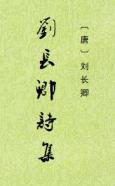 〔唐〕刘长卿
劉長卿詩集